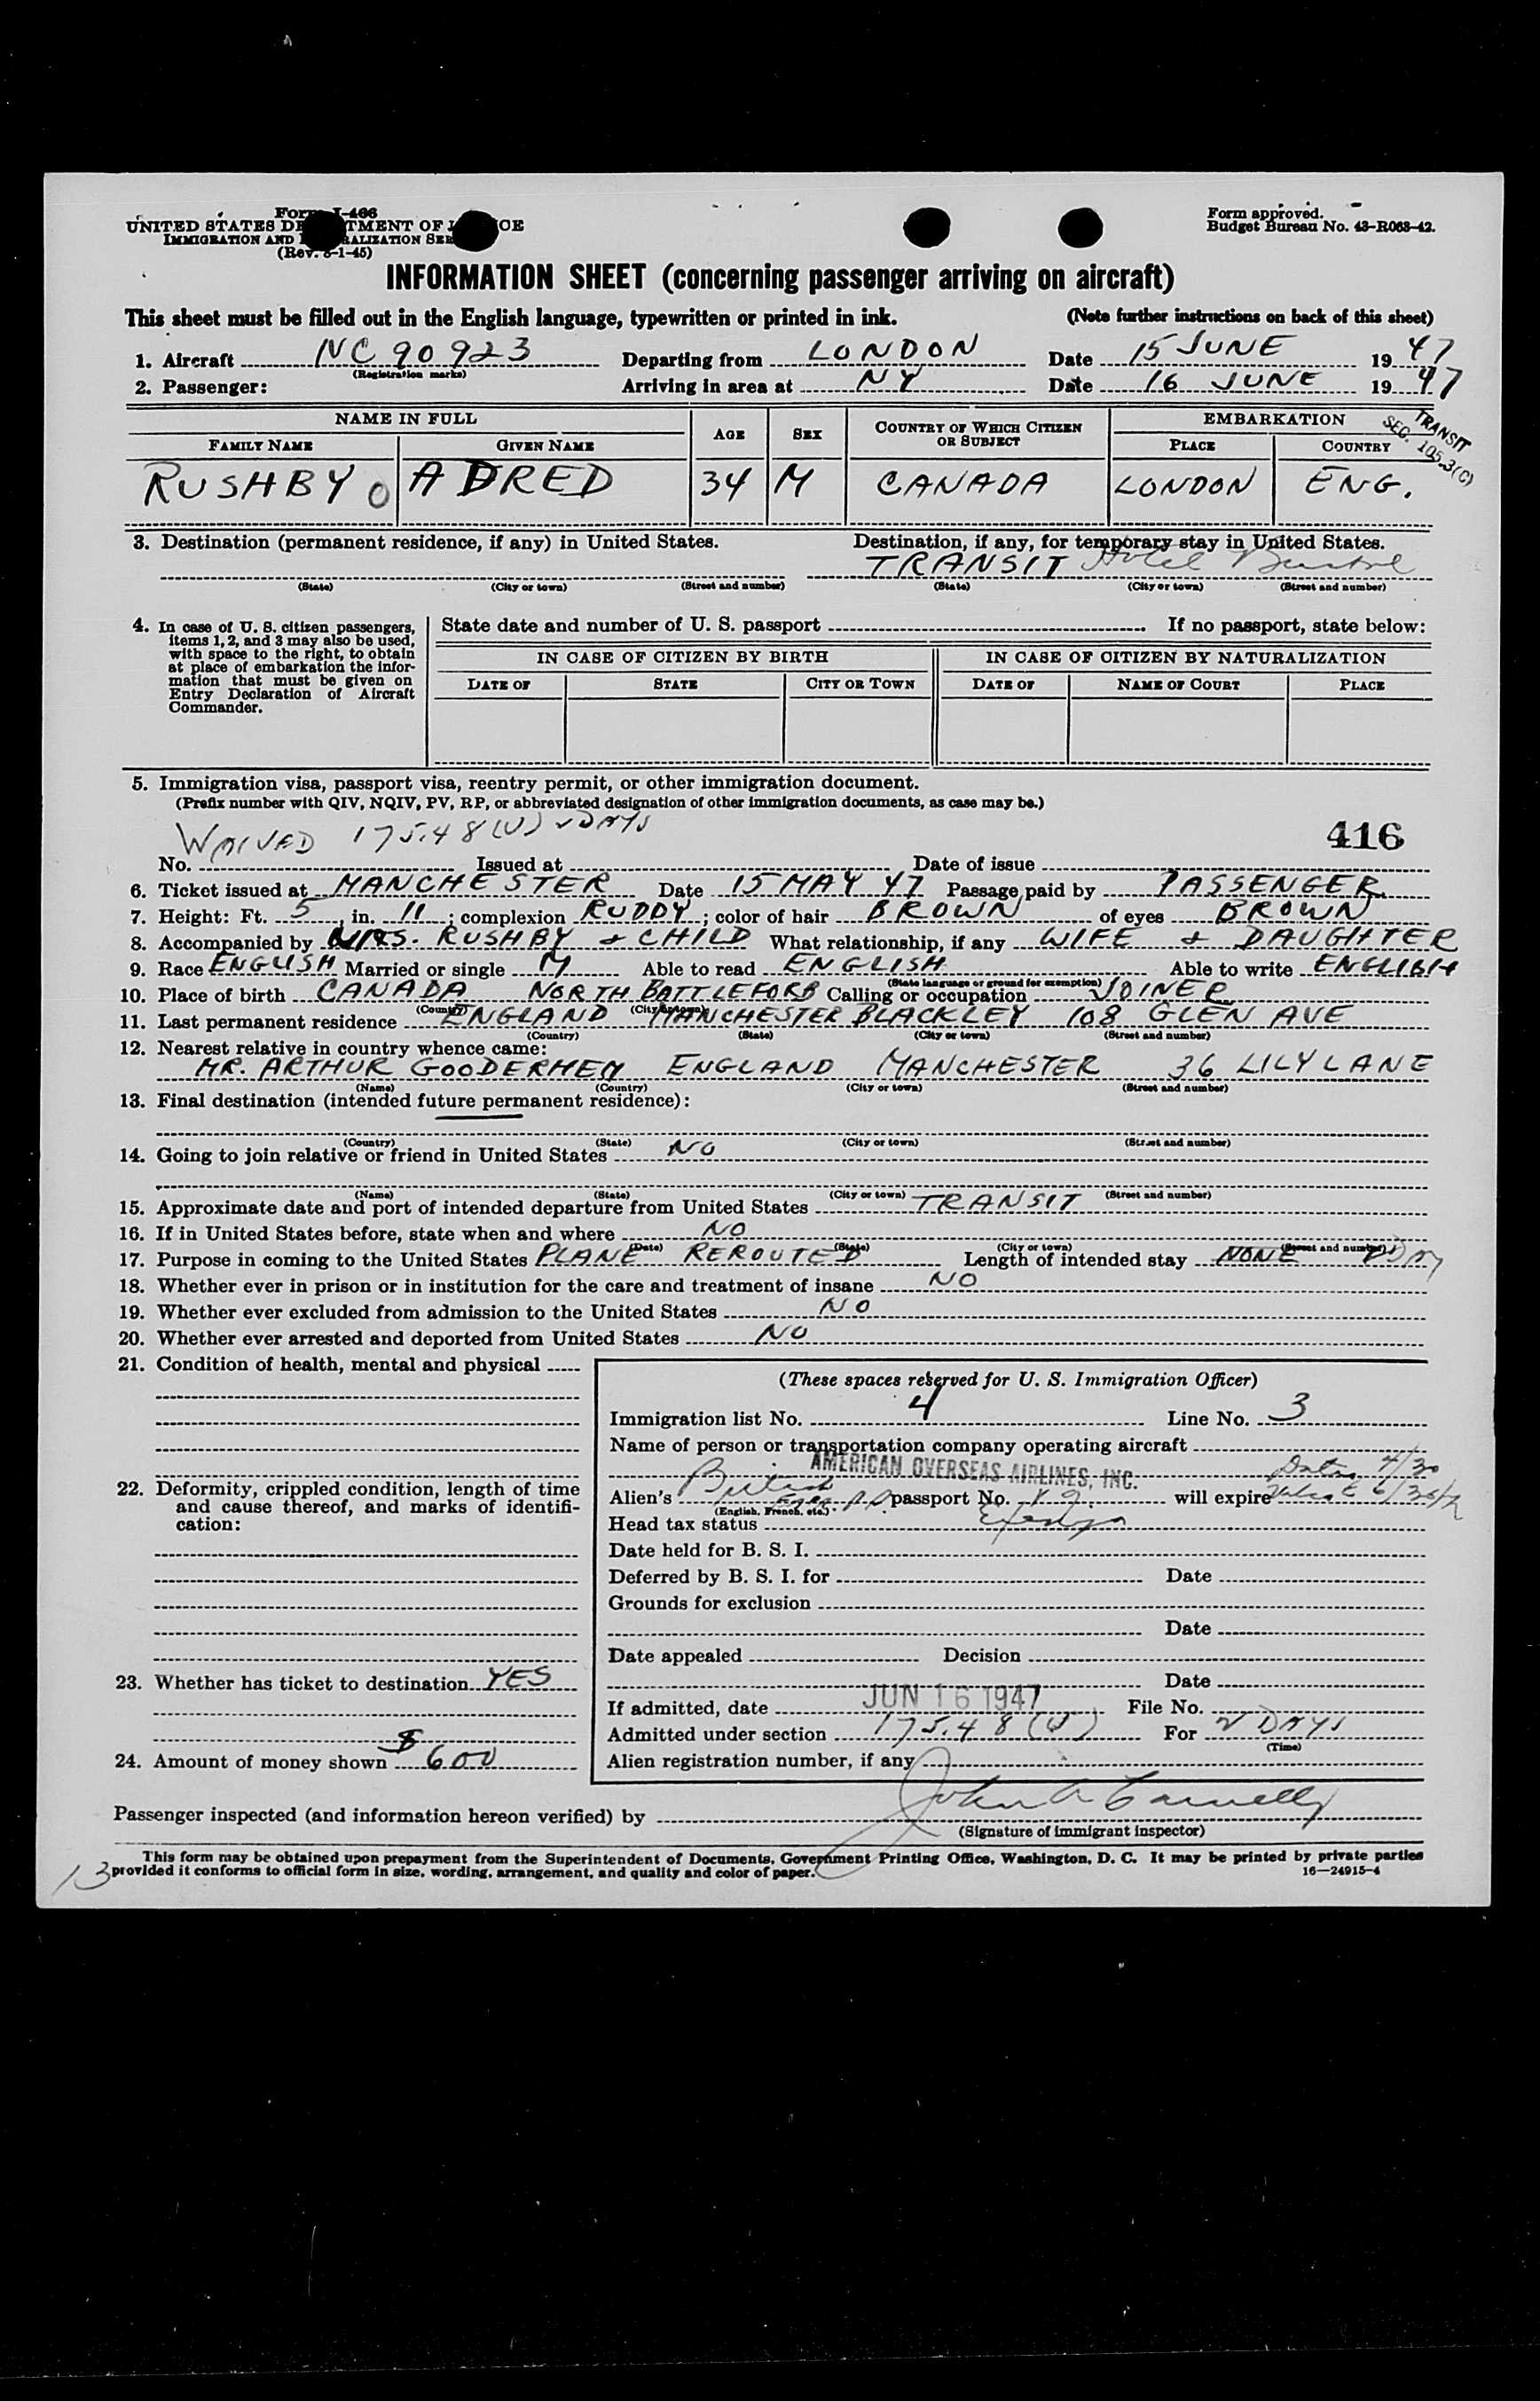 Form I-466
UNITED STATES DEPARTMENT OF JUSTICE
IMMIGRATION AND NATURALIZATION SER
(Rev. 8-1-45)
Form approved.
Budget Bureau No. 43-R063-42.
INFORMATION SHEET (concerning passenger arriving on aircraft)
This sheet must be filled out in the English language, typewritten or printed in ink. (Note further instructions on back of this sheet)
1. Aircraft NC 90923 Departing from LONDON Date 15 JUNE 1947
(Registration marks)
2. Passenger: Arriving in area at NY Date 16 JUNE 1947
TRANSIT
SEC. 105.3(C)
NAME IN FULL AGE SEX COUNTRY OF WHICH CITIZEN OR SUBJECT EMBARKATION
FAMILY NAME GIVEN NAME PLACE COUNTRY
RUSHBY O ADRED 34 M CANADA LONDON ENG.
3. Destination (permanent residence, if any) in United States. Destination, if any, for temporary stay in United States.
TRANSIT Hotel
(State) (City or town) (Street and number) (State) (City or town) (Street and number)
4. In case of U. S. citizen passengers, items 1, 2, and 3 may also be used, with space to the right, to obtain at place of embarkation the information that must be given on Entry Declaration of Aircraft Commander.
State date and number of U. S. passport If no passport, state below:
IN CASE OF CITIZEN BY BIRTH IN CASE OF CITIZEN BY NATURALIZATION
DATE OF STATE CITY OR TOWN DATE OF NAME OF COURT PLACE
5. Immigration visa, passport visa, reentry permit, or other immigration document.
(Prefix number with QIV, NQIV, PV, RP, or abbreviated designation of other immigration documents, as case may be.)
WAIVED 175.48(U) 2 DAYS
416
No. Issued at Date of issue
6. Ticket issued at MANCHESTER Date 15 MAY 47 Passage paid by PASSENGER
7. Height: Ft. 5, in. 11; complexion RUDDY; color of hair BROWN of eyes BROWN
8. Accompanied by MRS. RUSHBY & CHILD What relationship, if any WIFE & DAUGHTER
9. Race ENGLISH Married or single M Able to read ENGLISH Able to write ENGLISH
(State language or ground for exemption)
10. Place of birth CANADA NORTH BATTLEFORD Calling or occupation JOINER
(Country) (City or town)
11. Last permanent residence ENGLAND MANCHESTER BLACKLEY 108 GLEN AVE
(Country) (State) (City or town) (Street and number)
12. Nearest relative in country whence came:
MR. ARTHUR GOODERHEM ENGLAND MANCHESTER 36 LILY LANE
(Name) (Country) (City or town) (Street and number)
13. Final destination (intended future permanent residence):
(Country) (State) (City or town) (Street and number)
14. Going to join relative or friend in United States NO
(Name) (State) (City or town) (Street and number)
15. Approximate date and port of intended departure from United States TRANSIT
16. If in United States before, state when and where NO
(Date) (State) (City or town) (Street and number)
17. Purpose in coming to the United States PLANE REROUTED Length of intended stay NONE
18. Whether ever in prison or in institution for the care and treatment of insane NO
19. Whether ever excluded from admission to the United States NO
20. Whether ever arrested and deported from United States NO
21. Condition of health, mental and physical
22. Deformity, crippled condition, length of time and cause thereof, and marks of identification:
23. Whether has ticket to destination YES
24. Amount of money shown $600
(These spaces reserved for U. S. Immigration Officer)
Immigration list No. 4 Line No. 3
Name of person or transportation company operating aircraft
AMERICAN OVERSEAS AIRLINES, INC.
Alien's British passport No. will expire
(English, French, etc.)
Head tax status
Date held for B. S. I.
Deferred by B. S. I. for Date
Grounds for exclusion
Date
Date appealed Decision
Date
If admitted, date JUN 16 1947 File No.
Admitted under section 175.48(U) For 2 DAYS
(Time)
Alien registration number, if any
Passenger inspected (and information hereon verified) by John A
(Signature of immigrant inspector)
This form may be obtained upon prepayment from the Superintendent of Documents, Government Printing Office, Washington, D. C. It may be printed by private parties
provided it conforms to official form in size, wording, arrangement, and quality and color of paper. 16—24915-4
13